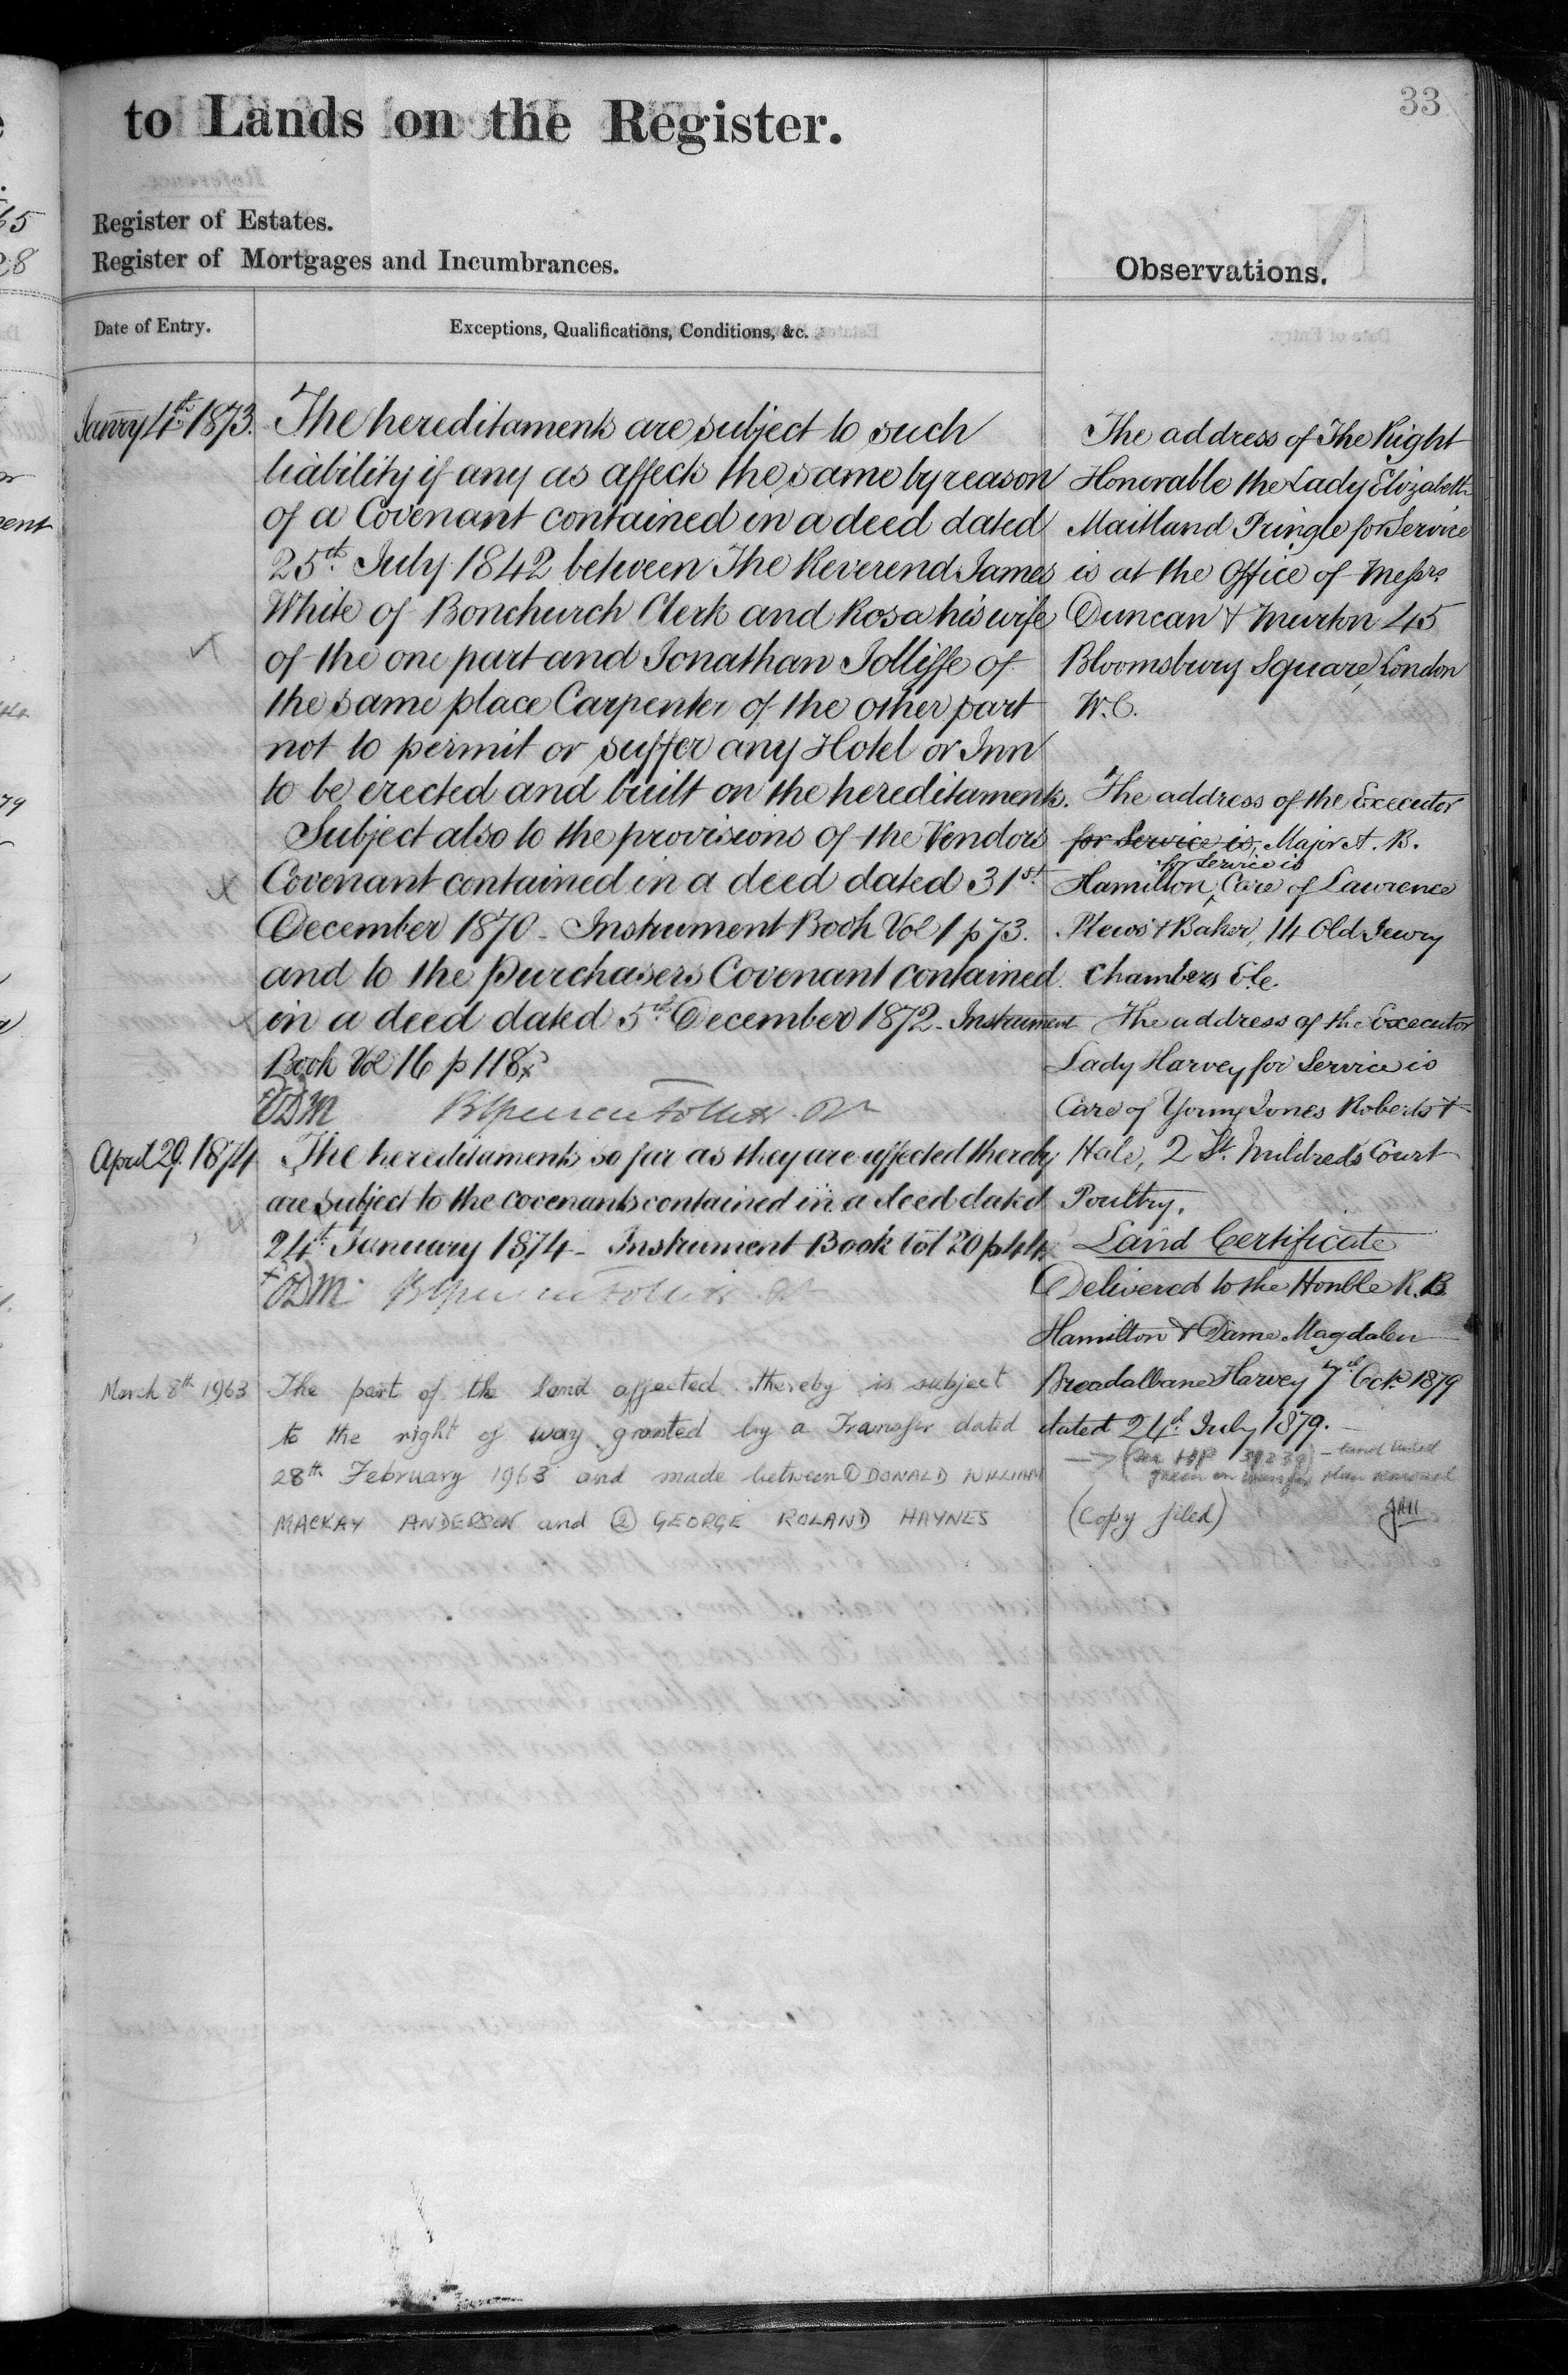 33
to Lands on the Register.
Register of Estates.
Register of Mortgages and Incumbrances.
Observations.
Date of Entry.
Exceptions, Qualifications, Conditions, &c.
Janry 4th 1873.
The hereditaments are subject to such
liability if any as affects the same by reason
of a Covenant contained in a deed dated
25th July 1842 between The Reverend James
White of Bonchurch Clerk and Rosa his wife
of the one part and Jonathan Jolliffe of
the same place Carpenter of the other part
not to permit or suffer any Hotel or Inn
to be erected and built on the hereditaments.
Subject also to the provisions of the Vendors
Covenant contained in a deed dated 31st
December 1870 - Instrument Book Vol 1 p 73.
and to the Purchasers Covenant contained
in a deed dated 5th December 1872 - Instrument
Book Vol 16 p 118
April 29. 1874
The hereditaments so far as they are affected thereby
are subject to the covenants contained in a deed dated
24th January 1874 - Instrument Book Vol 20 p 44
March 8th 1963
The part of the land affected thereby is subject
to the right of way granted by a Transfer dated
28th February 1963 and made between ① DONALD WILLIAM
MACKAY ANDERSON and ② GEORGE ROLAND HAYNES
The address of The Right
Honorable the Lady Elizabeth
Maitland Pringle for Service
is at the Office of Messrs
Duncan & Murton 45
Bloomsbury Square, London
W.C.
The address of the Executor
for Service is, Major A. B.
for Service is
Hamilton, Care of Lawrence
Plews & Baker, 14 Old Jewry
Chambers E.C.
The address of the Executor
Lady Harvey for Service is
Care of Young Jones Roberts &
Hale, 2 St. Mildred's Court
Poultry.
Land Certificate
Delivered to the Honble R. B.
Hamilton & Dame Magdalen
Breadalbane Harvey 7th Octr 1879
dated 24th July 1879.
land tinted
green on transfer plan removed
(Copy filed)